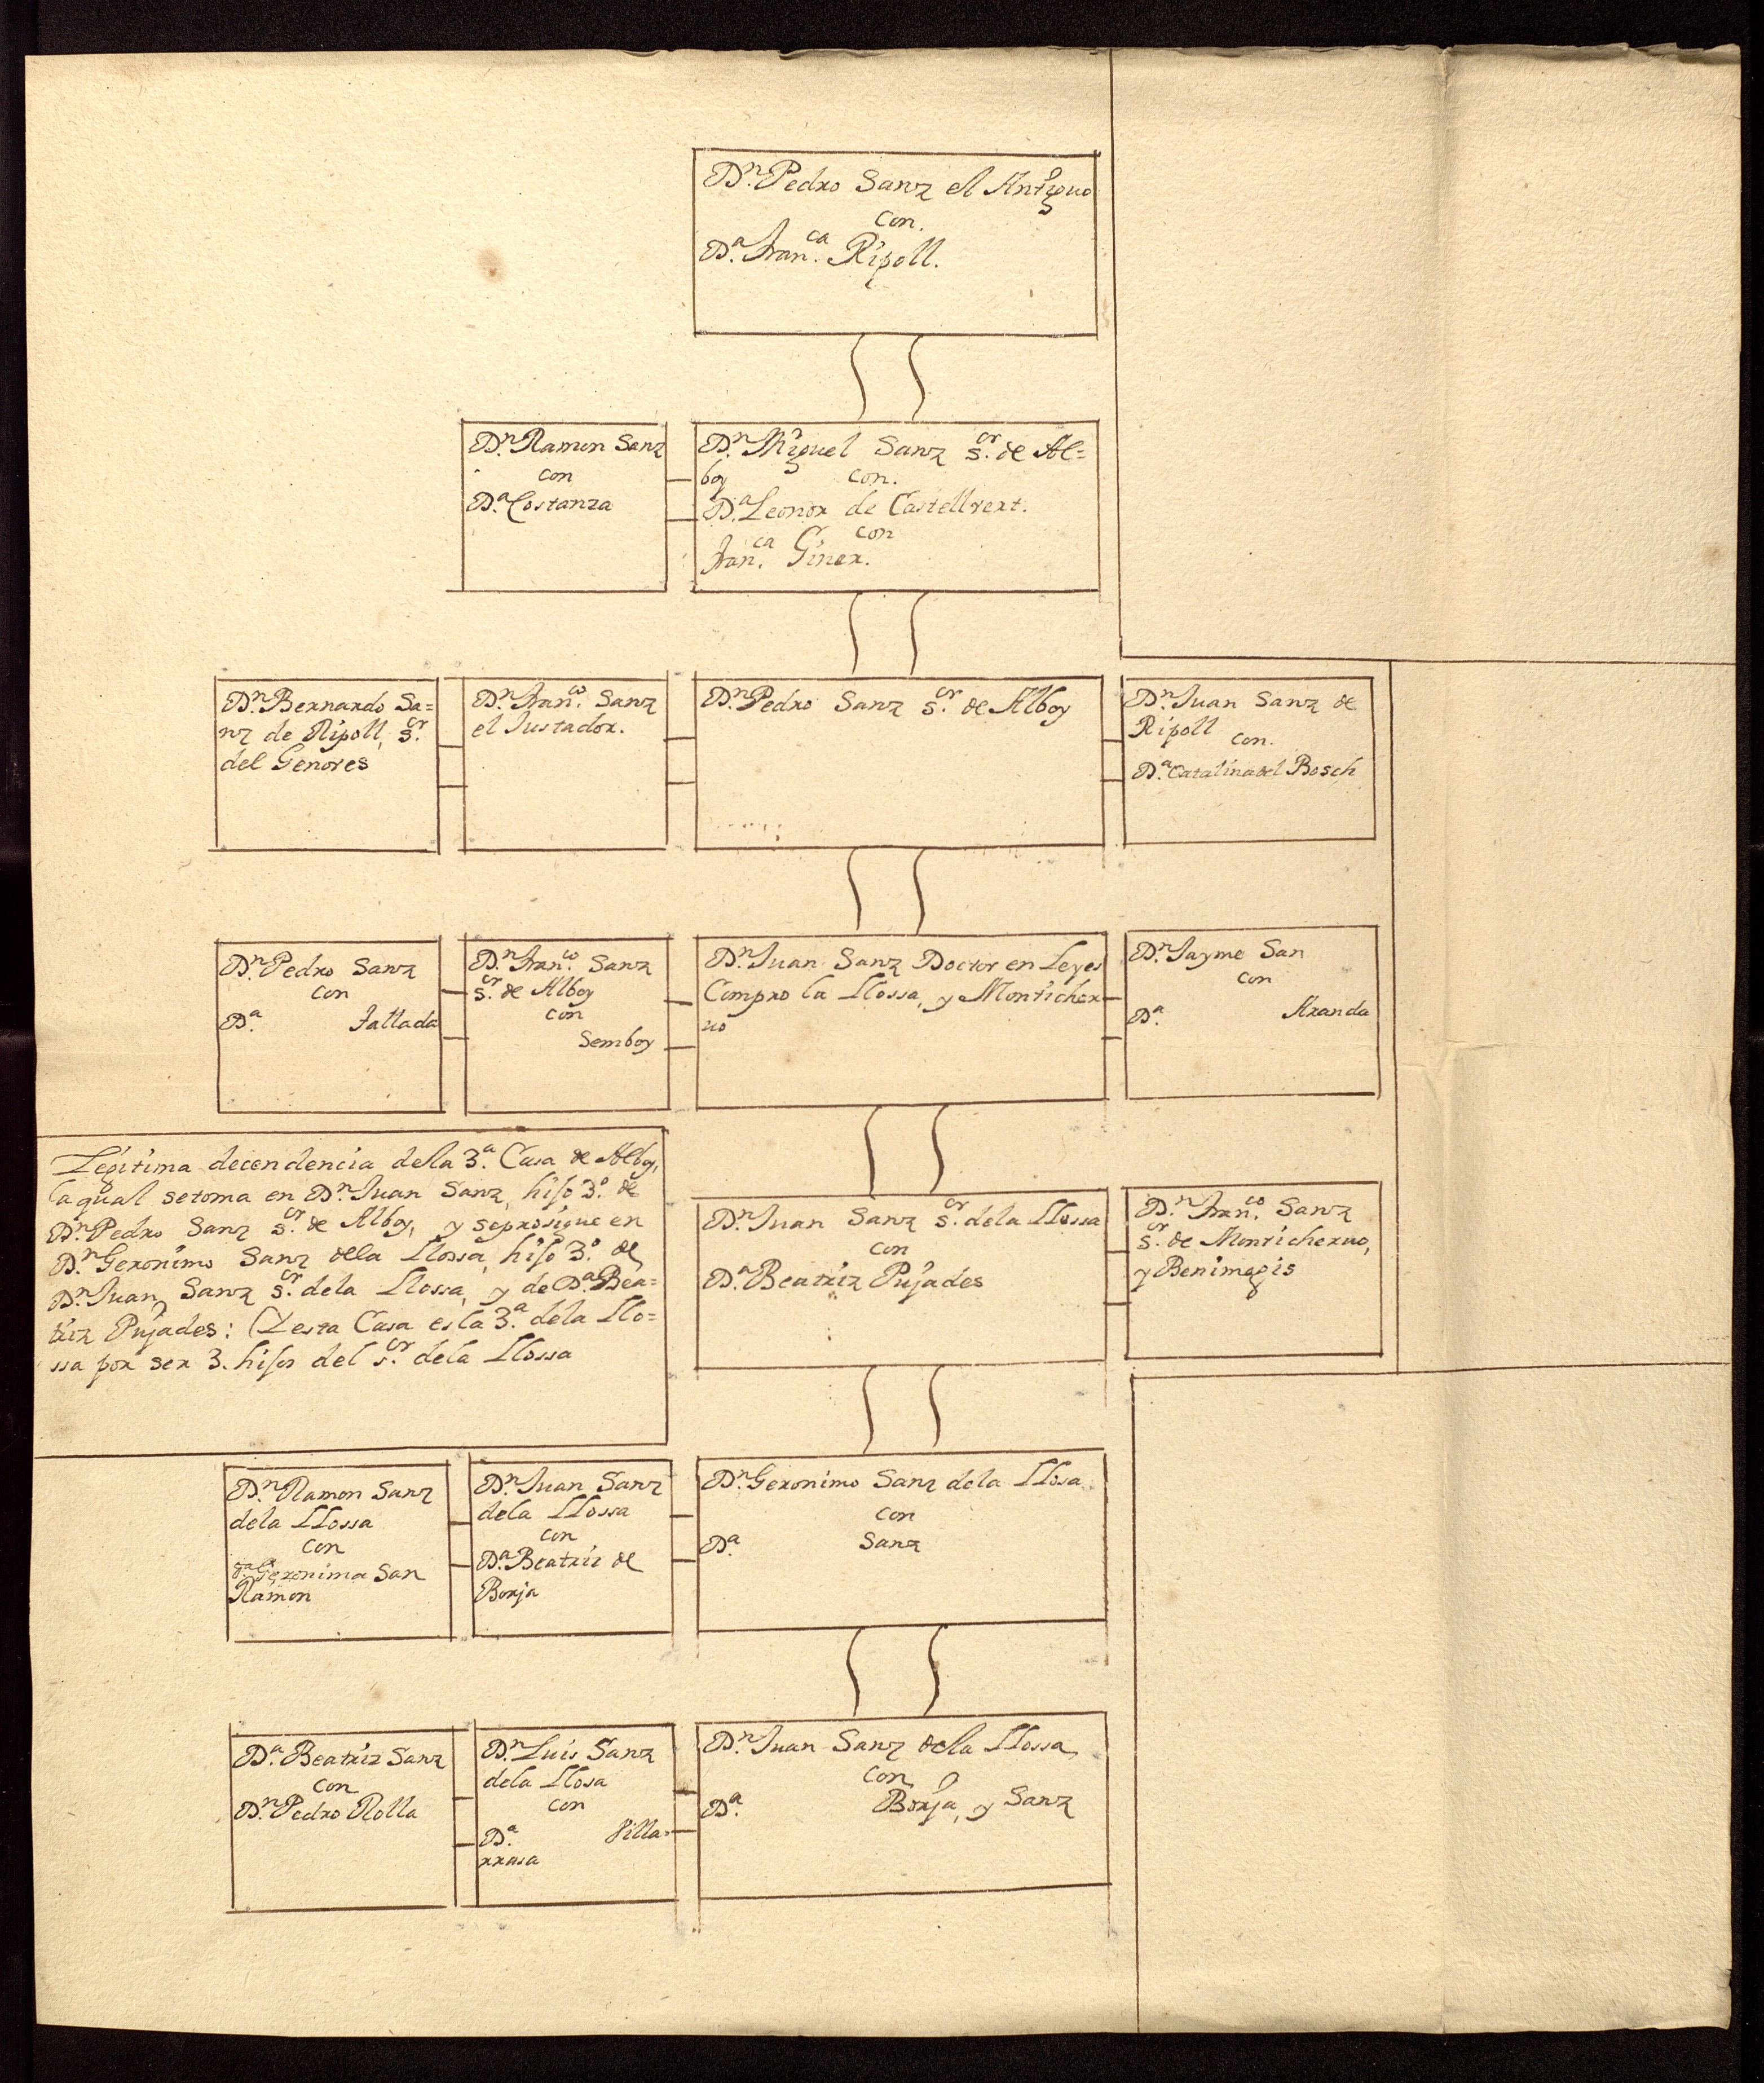 Dn. Pedro Sanz el Antiguo
con.
Da. Franca. Ripoll.
Dn. Ramon Sanz
con
Da. Costanza
Dn. Miguel Sanz sor. de Al=
boy con.
Da. Leonor de Castellvert.
con
Franca. Giner.
Dn. Bernardo Sa=
nz de Ripoll, sor.
del Genoves
Dn. Franco. Sanz
el Iustador.
Dn. Pedro Sanz sor. de Alboy
Dn. Juan Sanz de
Ripoll con.
Da. Catalina del Bosch
Dn. Pedro Sanz
con
Da. Tallada
Dn. Franco. Sanz
sor. de Alboy
con
Semboy
Dn. Juan Sanz Doctor en Leyes
Compro la Llossa, y Monticher
uo
Dn. Jayme San
con
Da. Aranda
Legitima decendencia dela 3a. Casa de Alboy,
la qual setoma en Dn. Juan Sanz, hijo 3o. de
Dn. Pedro Sanz sor. de Alboy, y seprosigue en
Dn. Geronimo Sanz dela Llossa, hijo 3o. de
Dn. Juan Sanz sor. dela Llossa, y de Da. Bea=
triz Pujades: (Y esta Casa es la 3a. dela Llo=
ssa por ser 3. hijos del sor. dela Llossa
Dn. Juan Sanz sor. dela Llossa
con
Da. Beatriz Pujades
Dn. Franco. Sanz
sor. de Monticheruo,
y Benimegis
Dn. Ramon Sanz
dela Llossa
con
Da. Geronima San
Ramon
Dn. Juan Sanz
dela Llossa
con
Da. Beatriz de
Borja
Dn. Geronimo Sanz dela Llosa
con
Da. Sanz
Da. Beatriz Sanz
con
Dn. Pedro Rolla
Dn. Luis Sanz
dela Llosa
con
Da. Villa=
rrasa
Dn. Juan Sanz dela Llossa,
con
Da. Borja, y Sanz